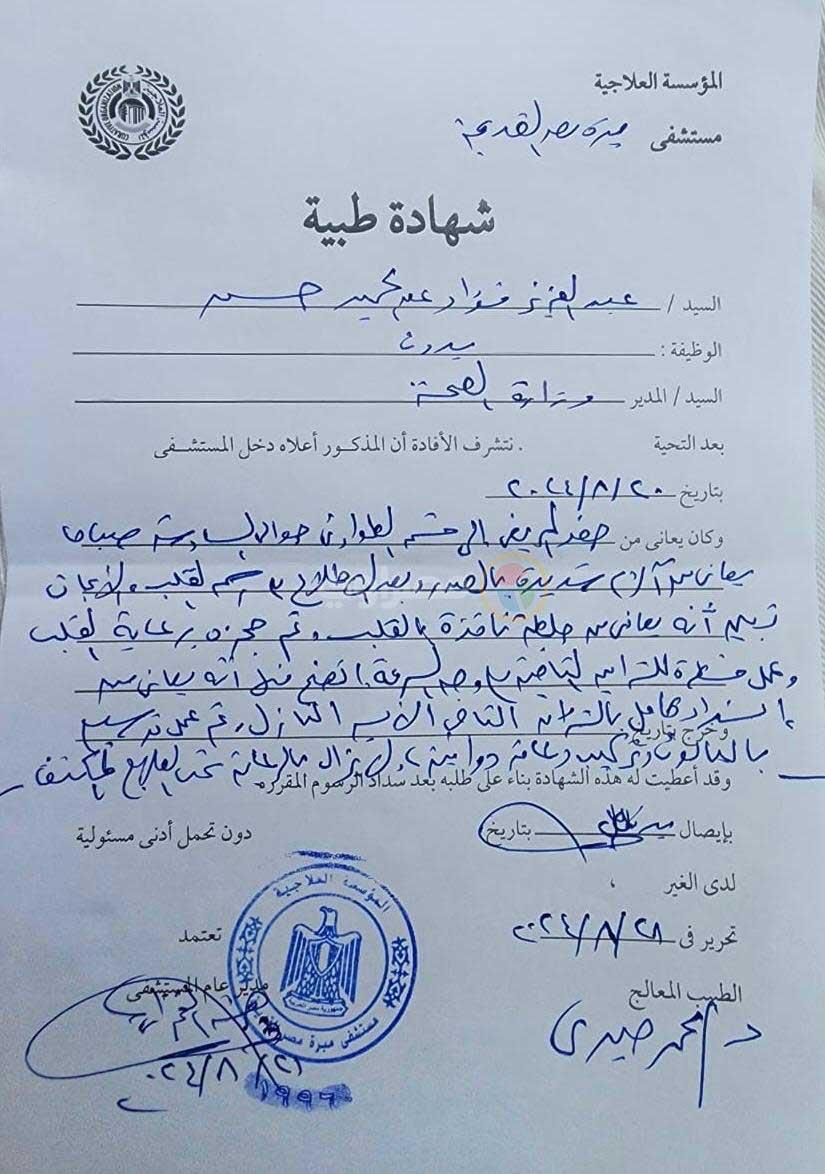 المؤسسة العلاجية
CURATIVE ORGANIZATION
مستشفى مبرة مصر القديمة
شهادة طبية
السيد / عبد العزيز فؤاد عبد الحميد حسن
الوظيفة :
السيد / المدير وزارة الصحة
بعد التحية . نتشرف الأفادة أن المذكور أعلاه دخل المستشفى
بتاريخ ٢٠٢٤/٨/٢٠
وكان يعانى من حضر المريض الى قسم الطوارئ حوالى السادسة صباحا
يعانى من آلام شديدة بالصدر وبعد الاطلاع على رسم القلب والأبحاث
تبين أنه يعانى من جلطة نافذة بالقلب وتم حجزه برعاية القلب
وعمل قسطرة للشرايين التاجية على وجه السرعة اتضح منها أنه يعانى من
انسداد كامل بالشريان التاجى الأيسر النازل وتم عمل توسيع
وخرج بتاريخ
بالبالون وتركيب دعامة دوائية ولا يزال بالرعاية تحت العلاج المكثف
وقد أعطيت له هذه الشهادة بناء على طلبه بعد سداد الرسوم المقرره
بإيصال بتاريخ دون تحمل أدنى مسئولية
لدى الغير ،
تحرير فى ٢٠٢٤/٨/٢١ تعتمد
الطبيب المعالج مدير عام المستشفى
د / محمد صبرى
٢٠٢٤/٨/٢١
المؤسسة العلاجية
جمهورية مصر العربية
مستشفى مبرة مصر القديمة
١٩٩٩